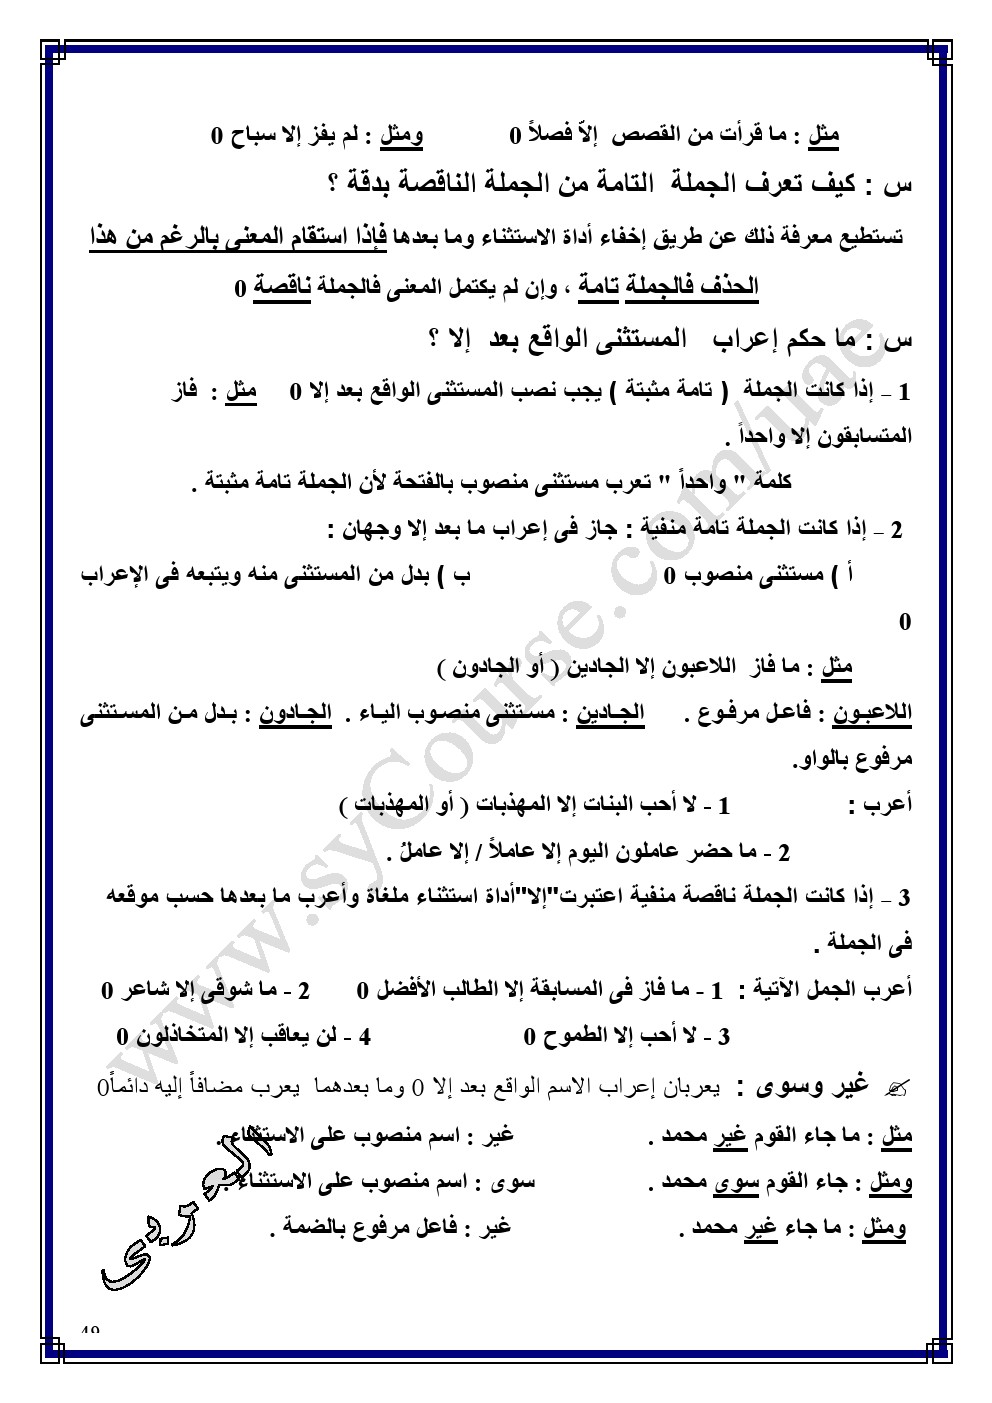 مثل : ما قرأت من القصص إلاّ فصلاً 0 ومثل : لم يفز إلا سباح 0
س : كيف تعرف الجملة التامة من الجملة الناقصة بدقة ؟
تستطيع معرفة ذلك عن طريق إخفاء أداة الاستثناء وما بعدها فإذا استقام المعنى بالرغم من هذا
الحذف فالجملة تامة ، وإن لم يكتمل المعنى فالجملة ناقصة 0
س : ما حكم إعراب المستثنى الواقع بعد إلا ؟
1 – إذا كانت الجملة ( تامة مثبتة ) يجب نصب المستثنى الواقع بعد إلا 0 مثل : فاز
المتسابقون إلا واحداً .
كلمة " واحداً " تعرب مستثنى منصوب بالفتحة لأن الجملة تامة مثبتة .
2 – إذا كانت الجملة تامة منفية : جاز فى إعراب ما بعد إلا وجهان :
أ ) مستثنى منصوب 0 ب ) بدل من المستثنى منه ويتبعه فى الإعراب
0
مثل : ما فاز اللاعبون إلا الجادين ( أو الجادون )
اللاعبـون : فاعـل مرفـوع . الجـادين : مسـتثنى منصـوب اليـاء . الجـادون : بـدل مـن المسـتثنى
مرفوع بالواو.
أعرب : 1 - لا أحب البنات إلا المهذبات ( أو المهذبات )
2 - ما حضر عاملون اليوم إلا عاملاً / إلا عاملُ .
3 – إذا كانت الجملة ناقصة منفية اعتبرت"إلا"أداة استثناء ملغاة وأعرب ما بعدها حسب موقعه
فى الجملة .
أعرب الجمل الآتية : 1 - ما فاز فى المسابقة إلا الطالب الأفضل 0 2 - ما شوقى إلا شاعر 0
3 - لا أحب إلا الطموح 0 4 - لن يعاقب إلا المتخاذلون 0
غير وسوى : يعربان إعراب الاسم الواقع بعد إلا 0 وما بعدهما يعرب مضافاً إليه دائماً0
مثل : ما جاء القوم غير محمد . غير : اسم منصوب على الاستثناء .
ومثل : جاء القوم سوى محمد . سوى : اسم منصوب على الاستثناء .
ومثل : ما جاء غير محمد . غير : فاعل مرفوع بالضمة .
العربى
www.syCourse.com/uae
49